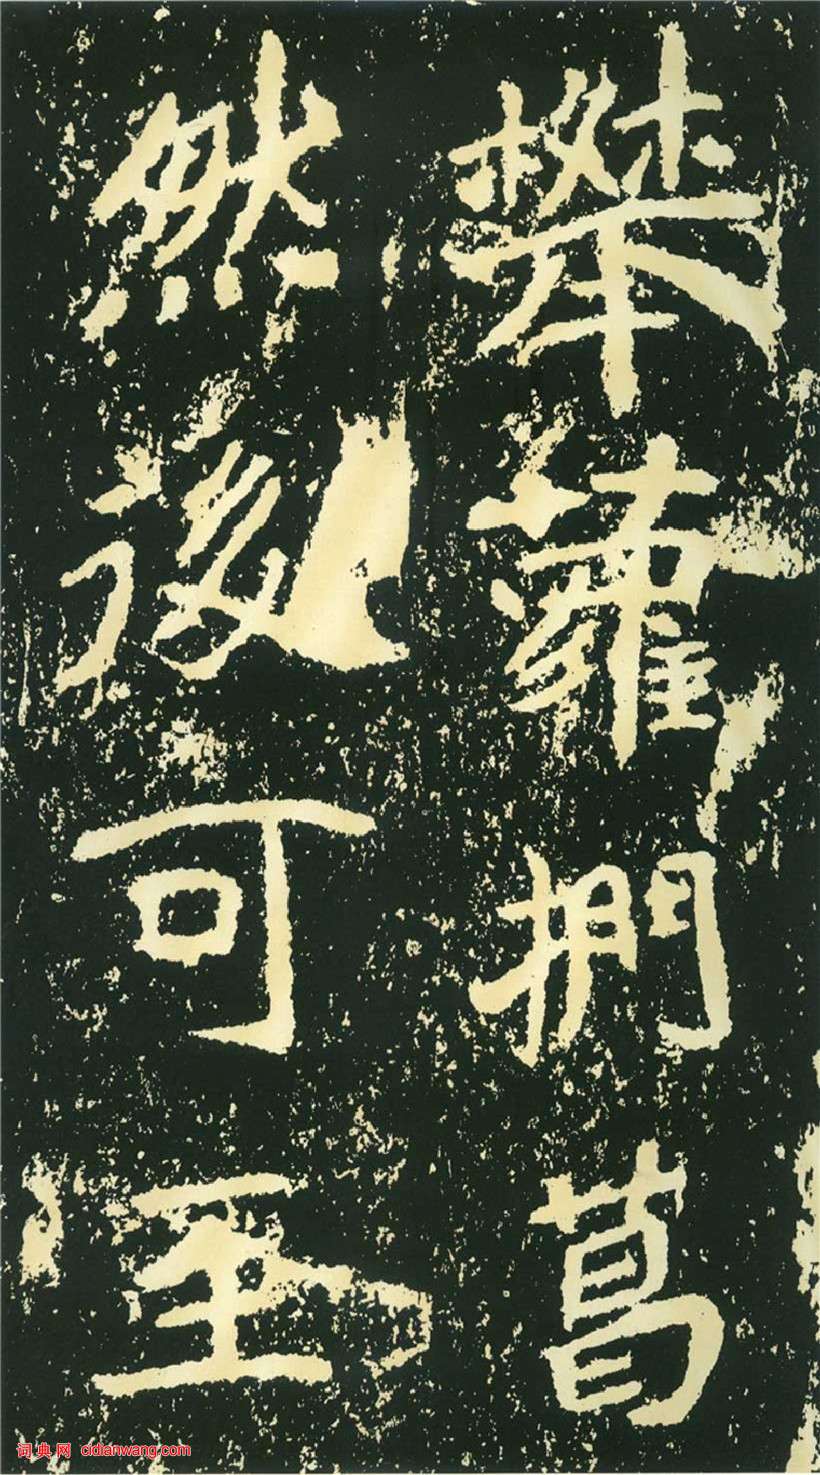 攀蘿捫葛
然後可至
词典网 cidianwang.com